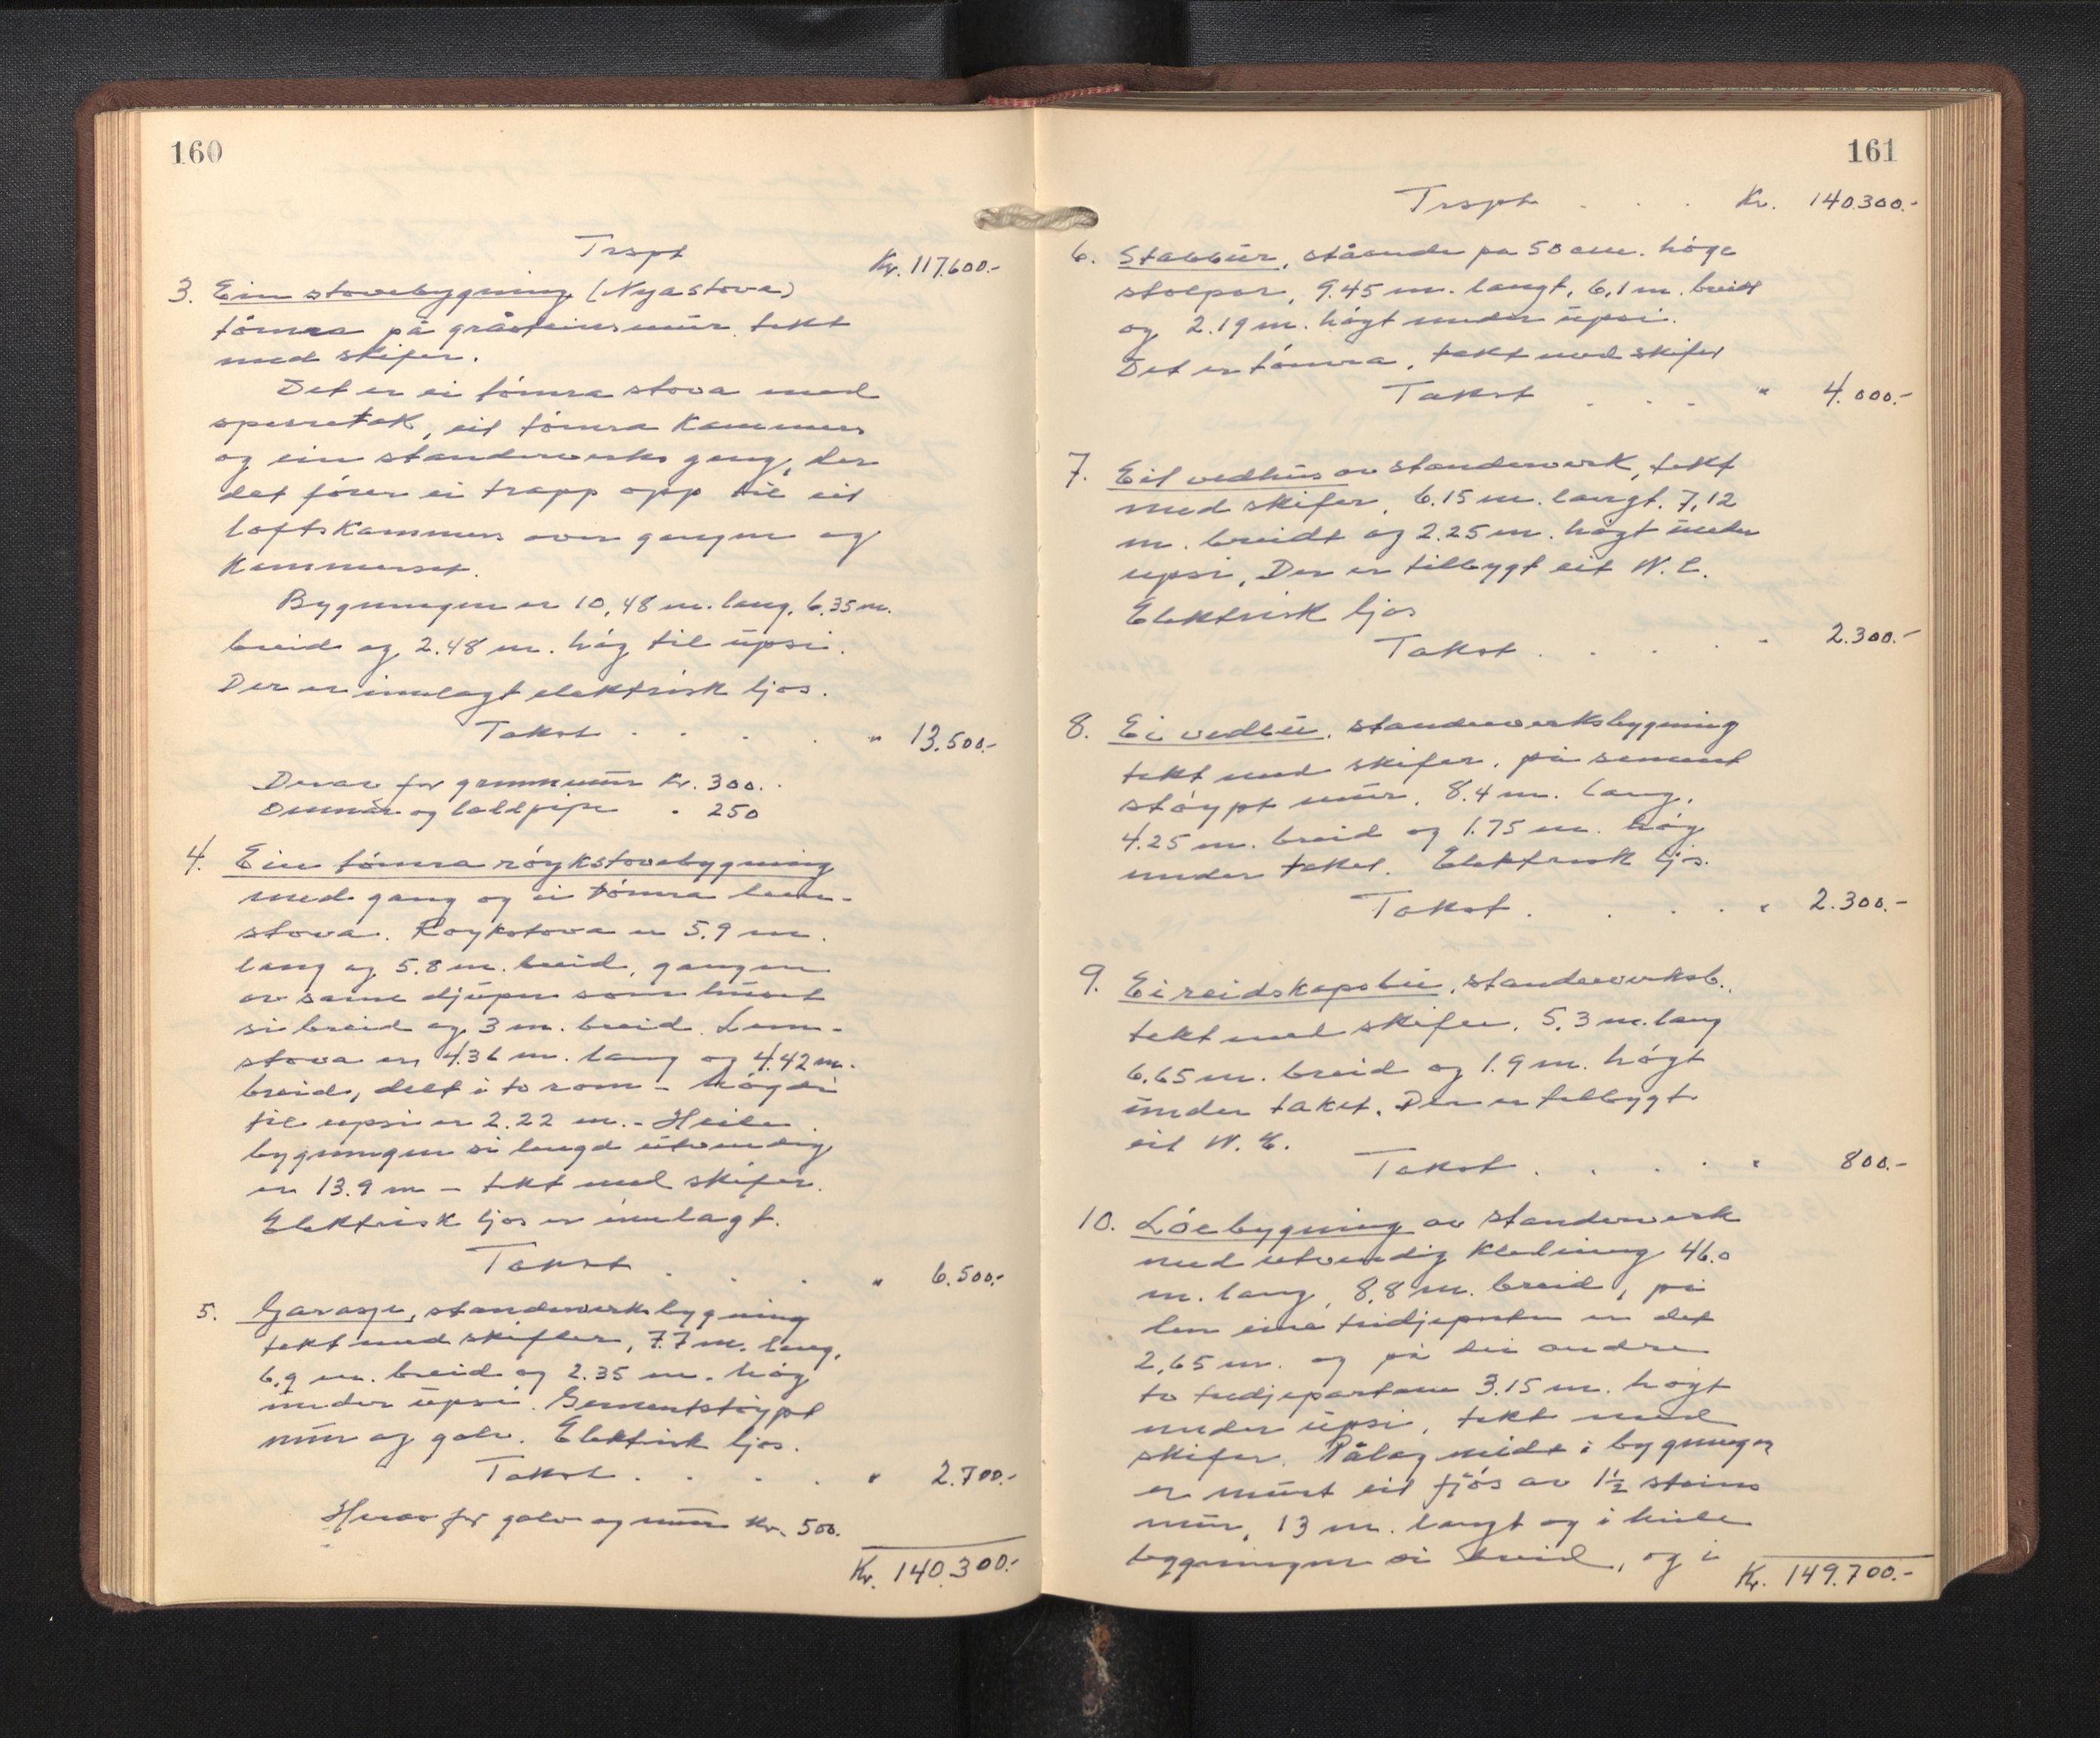 160
Trspt Kr. 117.600.-
3. Ein stovebygning (Nyastova)
tømra på gråsteinsmur tekt
med skifer.
Det er ei tømra stova med
sperretak, eit tømra kammers
og ein standerverks gang, der
det fører ei trapp opp til eit
loftskammers over gangen og
kammerset.
Bygningen er 10,48 m. lang, 6.35 m.
breid og 2.48 m. høg til upsi.
Der er innlagt elektrisk ljos.
Takst . . . . " 13.500.-
Derav for grunnmur kr. 300.-
Omnar og loddpipe " 250
4. Ein tømra røykstovebygning
med gang og ei tømra lem-
stova. Roykstova er 5.9 m.
lang og 5.8 m. breid, gangen
av same djupn som huset
si breid og 3 m. breid. Lem-
stova er 4.36 m. lang og 4.42 m.
breid, delt i to rom - høgdi
til upsi er 2.22 m. - Heile
bygningen si lengd utvendig
er 13.9 m - tekt med skifer.
Elektrisk ljos er innlagt.
Takst . . . " 6.500.-
5. Garasje, standerverksbygning
tekt med skifler, 7.7 m. lang,
6.9 m. breid og 2.35 m. høg
under upsi. Sementstøypt
mur og golv. Elektrisk ljos.
Takst . . . . " 2.700.-
Herav for golv og mur kr. 500.
Kr. 140.300.-
161
Trspt . . . Kr. 140.300.-
6. Stabbur, ståande på 50 cm. høge
stolpar, 9.45 m. langt, 6,1 m. breidt
og 2.19 m. høgt under upsi.
Det er tømra, tekt med skifer
Takst . . . " 4.000.-
7. Eit vedhus av standerverk, tekt
med skifer, 6.15 m. langt. 7,12
m. breidt og 2.25 m. høgt under
upsi, Der er tilbygt eit W. C.
Elektrisk ljos
Takst . . . . " 2.300.-
8. Ei vedbu, standerverksbygning
tekt med skifer, på sement
støypt mur, 8.4 m. lang,
4.25 m. breid og 1.75 m. høg
under taket. Elektrisk ljos.
Takst . . . . " 2.300.-
9. Ei reidskapsbu, standerverksb.,
tekt med skifer, 5,3 m. lang
6.65 m. breid og 1.9 m. høgt
under taket. Der er tilbygt
eit W. C.
Takst . . . . " 800.-
10. Løebygning av standerverk
med utvendig kledning 46.0
m. lang, 8,8 m. breid, på
den eine tridjeparten er det
2,65 m. og på dei andre
to tridjepartane 3.15 m. høgt
under upsi, tekt med
skifer. Pålag midt i bygningen
er murt eit fjøs av 1½ steins
mur, 13 m. langt og i heile
bygningen si breid, og i
Kr. 149.700.-